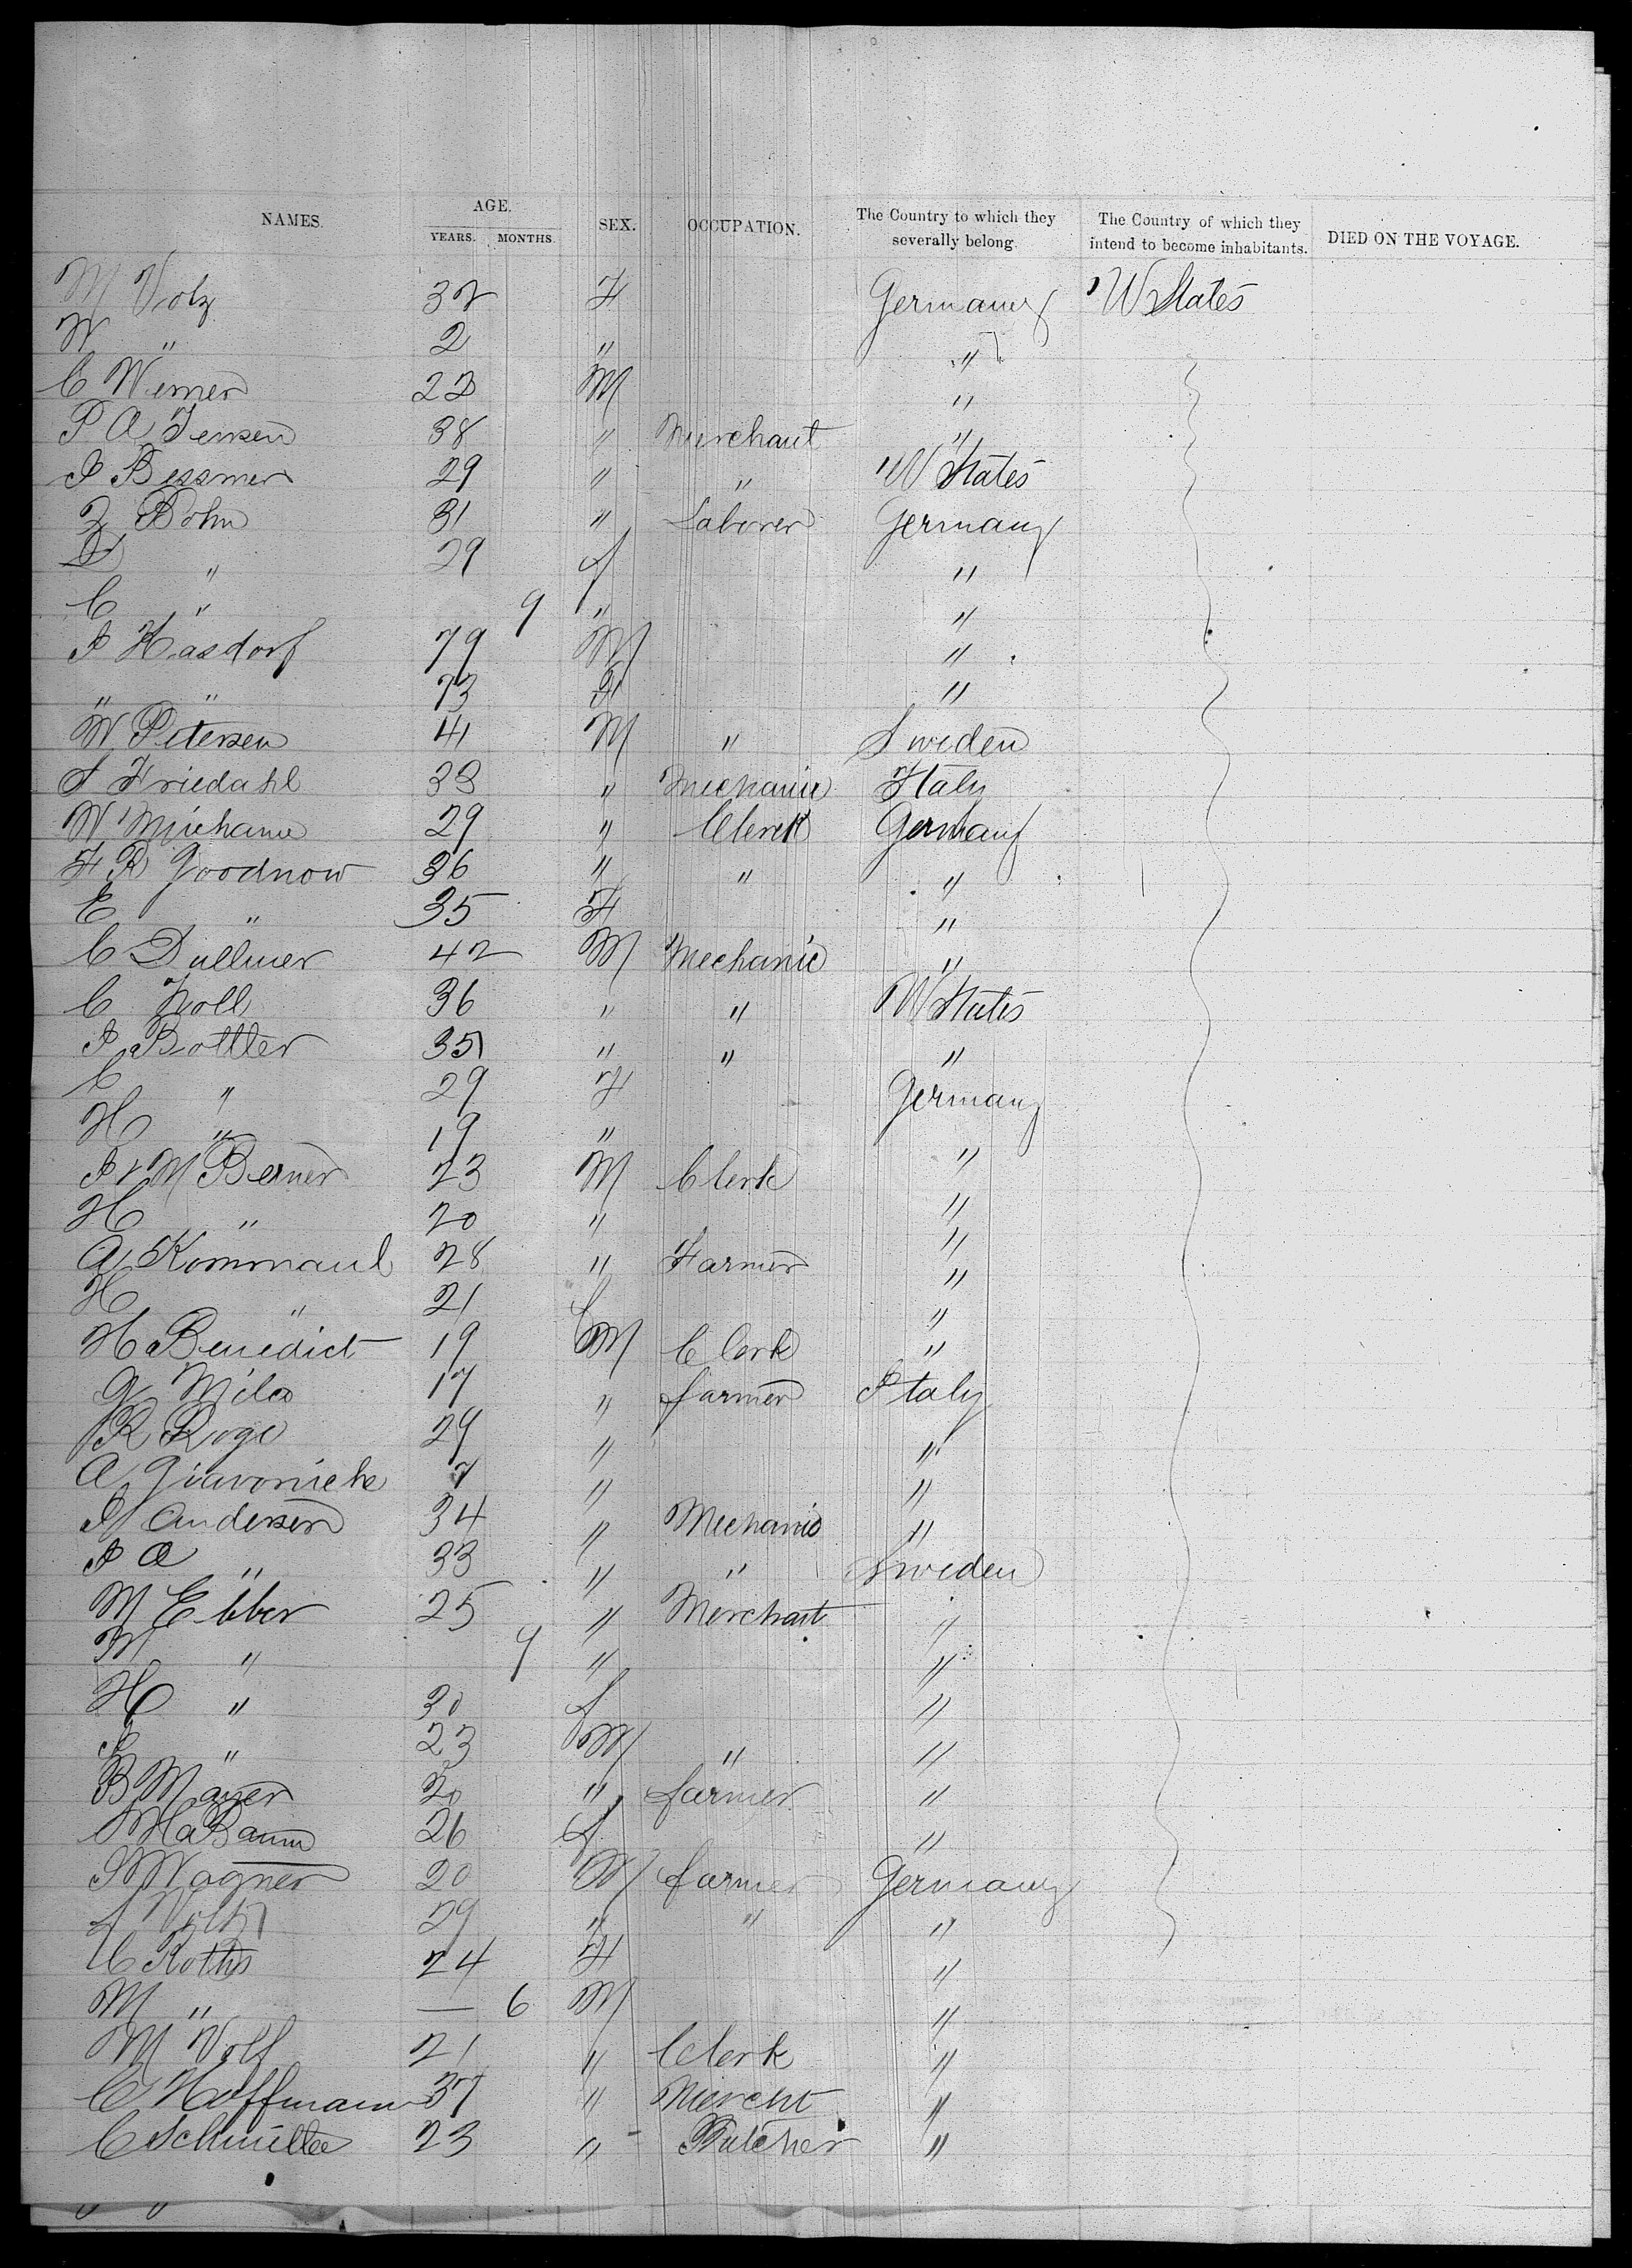 NAMES. AGE. SEX. OCCUPATION. The Country to which they severally belong. The Country of which they intend to become inhabitants. DIED ON THE VOYAGE.
YEARS. MONTHS.
M Volz 32 F Germany U States
W " 2 " "
C Werner 22 M "
P A Jensen 38 " Merchant "
J Bessmer 29 " " U States
Z Bohn 31 " Laborer Germany
" 29 f "
C " 9 " "
J Hasdorf 79 M "
" " 73 F "
W Petersen 41 M " Sweden
S Friedahl 33 " Mechanic Italy
W 29 " Clerk Germany
F R Goodnow 36 " " "
E " 35 F "
C Dullmer 42 M Mechanic "
C Noll 36 " " U States
J Bottler 35 " " "
C " 29 F Germany
H " 19 "
J M Berner 23 M Clerk "
H " 20 " "
A Kommaul 28 " Farmer "
H " 21 f "
H Benedict 19 M Clerk "
G Milo 17 " farmer Italy
R Roge 29 " "
A 7 " "
J Andersen 34 " Mechanic "
J A " 33 " " Sweden
M Ebber 25 " Merchant "
M " 9 " "
H " 30 f "
" 23 M " "
B Mayer 20 " farmer "
Baum 26 f "
S Wagner 20 M farmer Germany
29 " " "
C Roths 24 F "
M " — 6 M "
M Wolf 21 " Clerk "
C Hoffmann 37 " Mercht "
C 23 " Butcher "